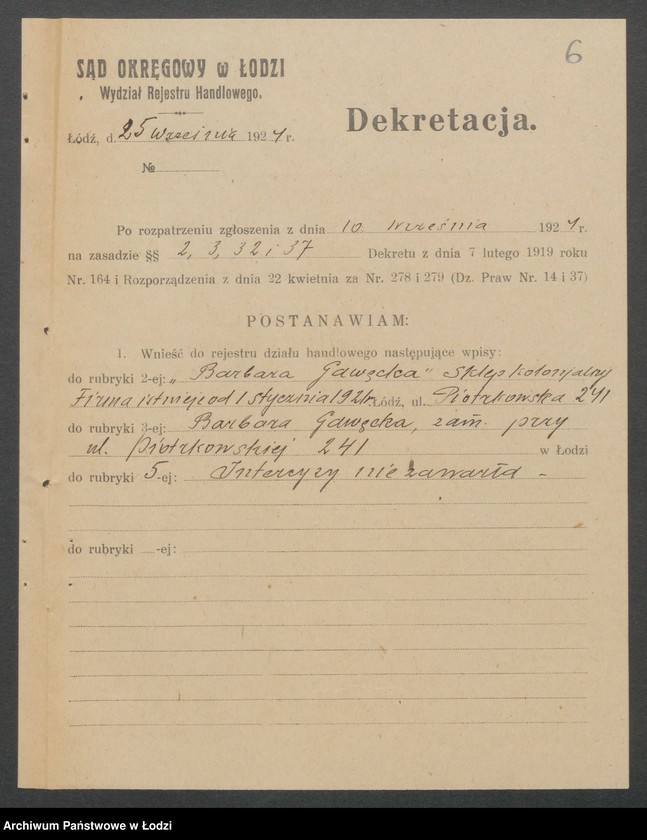 6
SĄD OKRĘGOWY w ŁODZI
Wydział Rejestru Handlowego.
Dekretacja.
Łódź, d. 25 września 1924 r.
№
Po rozpatrzeniu zgłoszenia z dnia 10 września 1924 r.
na zasadzie §§ 2, 3, 32 i 37 Dekretu z dnia 7 lutego 1919 roku
Nr. 164 i Rozporządzenia z dnia 22 kwietnia za Nr. 278 i 279 (Dz. Praw Nr. 14 i 37)
POSTANAWIAM:
1. Wnieść do rejestru działu handlowego następujące wpisy:
do rubryki 2-ej: „Barbara Gawęcka" sklep kolonjalny
Firma istnieje od 1 stycznia 1921r. Łódź, ul. Piotrkowska 241
do rubryki 3-ej: Barbara Gawęcka, zam. przy
ul. Piotrkowskiej 241 w Łodzi
do rubryki 5-ej: Intercyzy nie zawarła -
do rubryki -ej:
Archiwum Państwowe w Łodzi